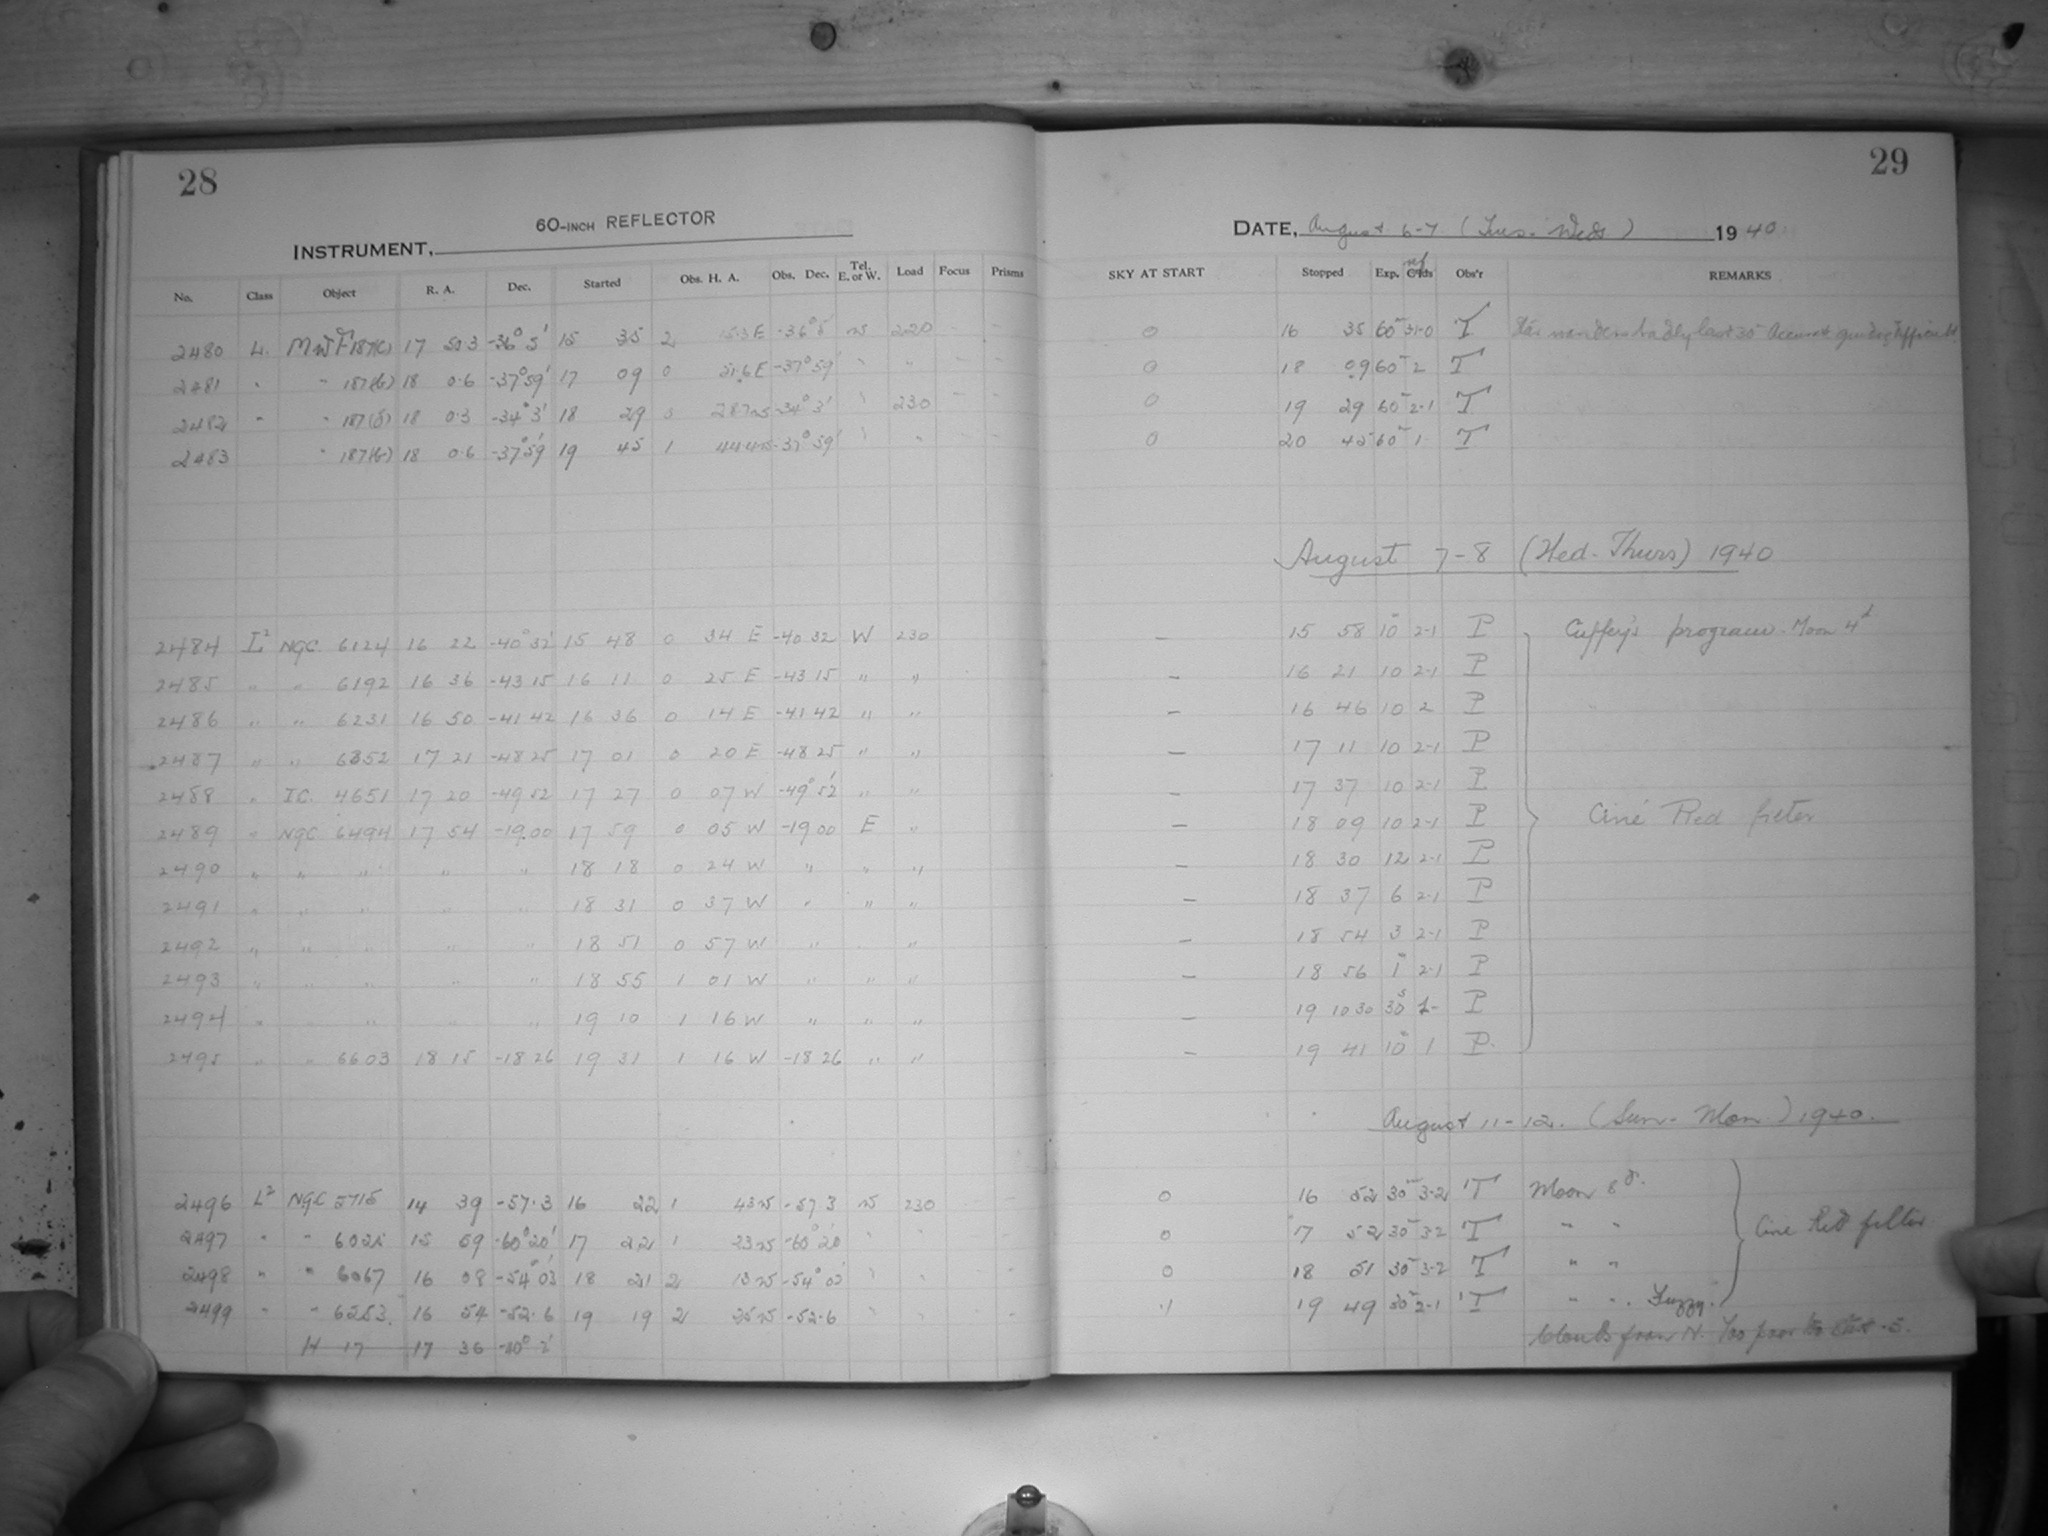 28
60-INCH REFLECTOR
INSTRUMENT,
No. Class Object R. A. Dec. Started Obs. H. A. Obs. Dec. Tel. E. or W. Load Focus Prisms
2480 L. MWF 187(c) 17 50 3 -36° 5' 15 35 2 15.3 E -36° 5' W 220 - -
2481 " " 187(b) 18 0.6 -37° 59' 17 09 0 51.6 E -37° 59' " " - -
2482 " " 187(d) 18 0.3 -34° 3' 18 29 0 28.7 W -34° 3' " 230 - -
2483 " 187(b) 18 0.6 -37° 59' 19 45 1 44.4 W -37° 59' " " - -
2484 L² NGC 6124 16 22 -40° 32' 15 48 0 34 E -40 32 W 230
2485 " " 6192 16 36 -43 15 16 11 0 25 E -43 15 " "
2486 " " 6231 16 50 -41 42 16 36 0 14 E -41 42 " "
2487 " " 6352 17 21 -48 25 17 01 0 20 E -48 25 " "
2488 " IC. 4651 17 20 -49 52 17 27 0 07 W -49° 52' " "
2489 " NGC 6494 17 54 -19.00 17 59 0 05 W -19 00 E "
2490 " " " " " 18 18 0 24 W " " "
2491 " " " " " 18 31 0 37 W " " "
2492 " " " " " 18 51 0 57 W " "
2493 " " " " " 18 55 1 01 W " " "
2494 " " " " " 19 10 1 16 W " " "
2495 " " 6603 18 15 -18 26 19 31 1 16 W -18 26 " "
2496 L² NGC 5715 14 39 -57.3 16 22 1 43 W -57 3 W 230 -
2497 " " 6025 15 59 -60° 20' 17 22 1 23 W -60° 20' " " -
2498 " " 6067 16 08 -54° 03' 18 21 2 13 W -54° 03' " " -
2499 " " 6253. 16 54 -52.6 19 19 2 25 W -52.6 " " -
H 17 17 36
29
DATE, August 6-7 (Tues. Weds) 1940
SKY AT START Stopped Exp. Obs'r REMARKS
0 16 35 60ᵐ 3-1-0 T Star wandered badly last 30 Accurate guiding difficult
0 18 09 60ᵐ 2 T
0 19 29 60ᵐ 2-1 T
0 20 45 60ᵐ 1 T
August 7-8 (Wed-Thurs) 1940
- 15 58 10ᵐ 2-1 P Cuffey's program - Moon 4ᵈ
- 16 21 10 2-1 P
- 16 46 10 2 P
- 17 11 10 2-1 P
- 17 37 10 2-1 P
- 18 09 10 2-1 P Ciné Red filter
- 18 30 12 2-1 P
- 18 37 6 2-1 P
- 18 54 3 2-1 P
- 18 56 1ᵐ 2-1 P
- 19 10 30 30ˢ 1- P
- 19 41 10ᵐ 1 P.
August 11-12. (Sun-Mon.) 1940.
0 16 52 30ᵐ 3-2 T Moon 8ᵈ.
0 17 52 30ᵐ 3-2 T " " Cine Red filter
0 18 51 30ᵐ 3-2 T " "
1 19 49 30ᵐ 2-1 T " ". Fuzzy.
Clouds from N. Too poor to